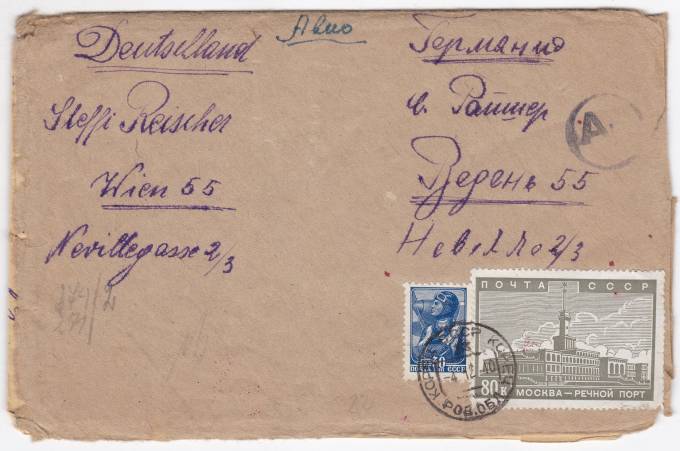 Deutschland
Авио
Германию
Steffi Reischer
с. Райшер
A
Wien 55
Ведень 55
Nevillegasse 2/3
Невилло 2/3
ПОЧТА СССР
80к
МОСКВА — РЕЧНОЙ ПОРТ
30